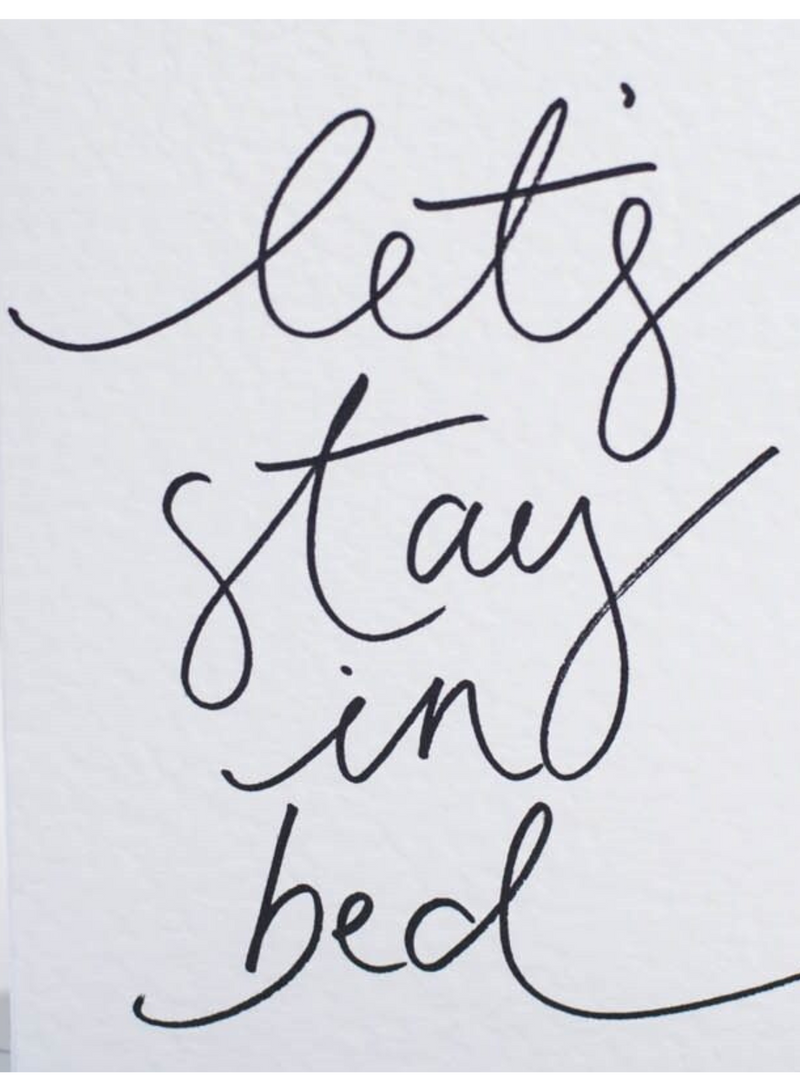 let's
stay
in
bed